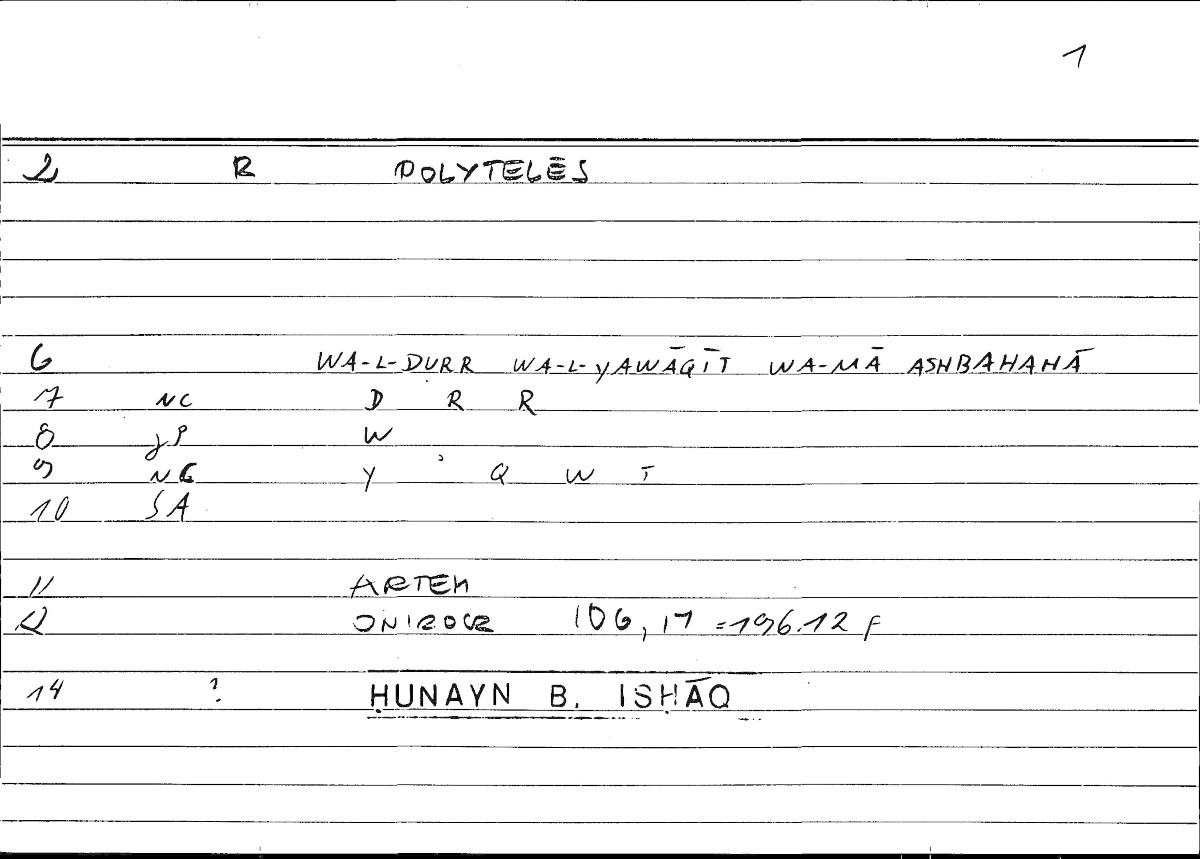 1
2 R POLYTELĒS
6 WA-L-DURR WA-L-YAWĀQĪT WA-MĀ ASHBAHAHĀ
7 NC D R R
8 JP W
9 NC Y ʾ Q W T
10 SA
11 ARTEM
12 ONIROCR 106,17 = 196.12 F
14 ? ḤUNAYN B. ISḤĀQ